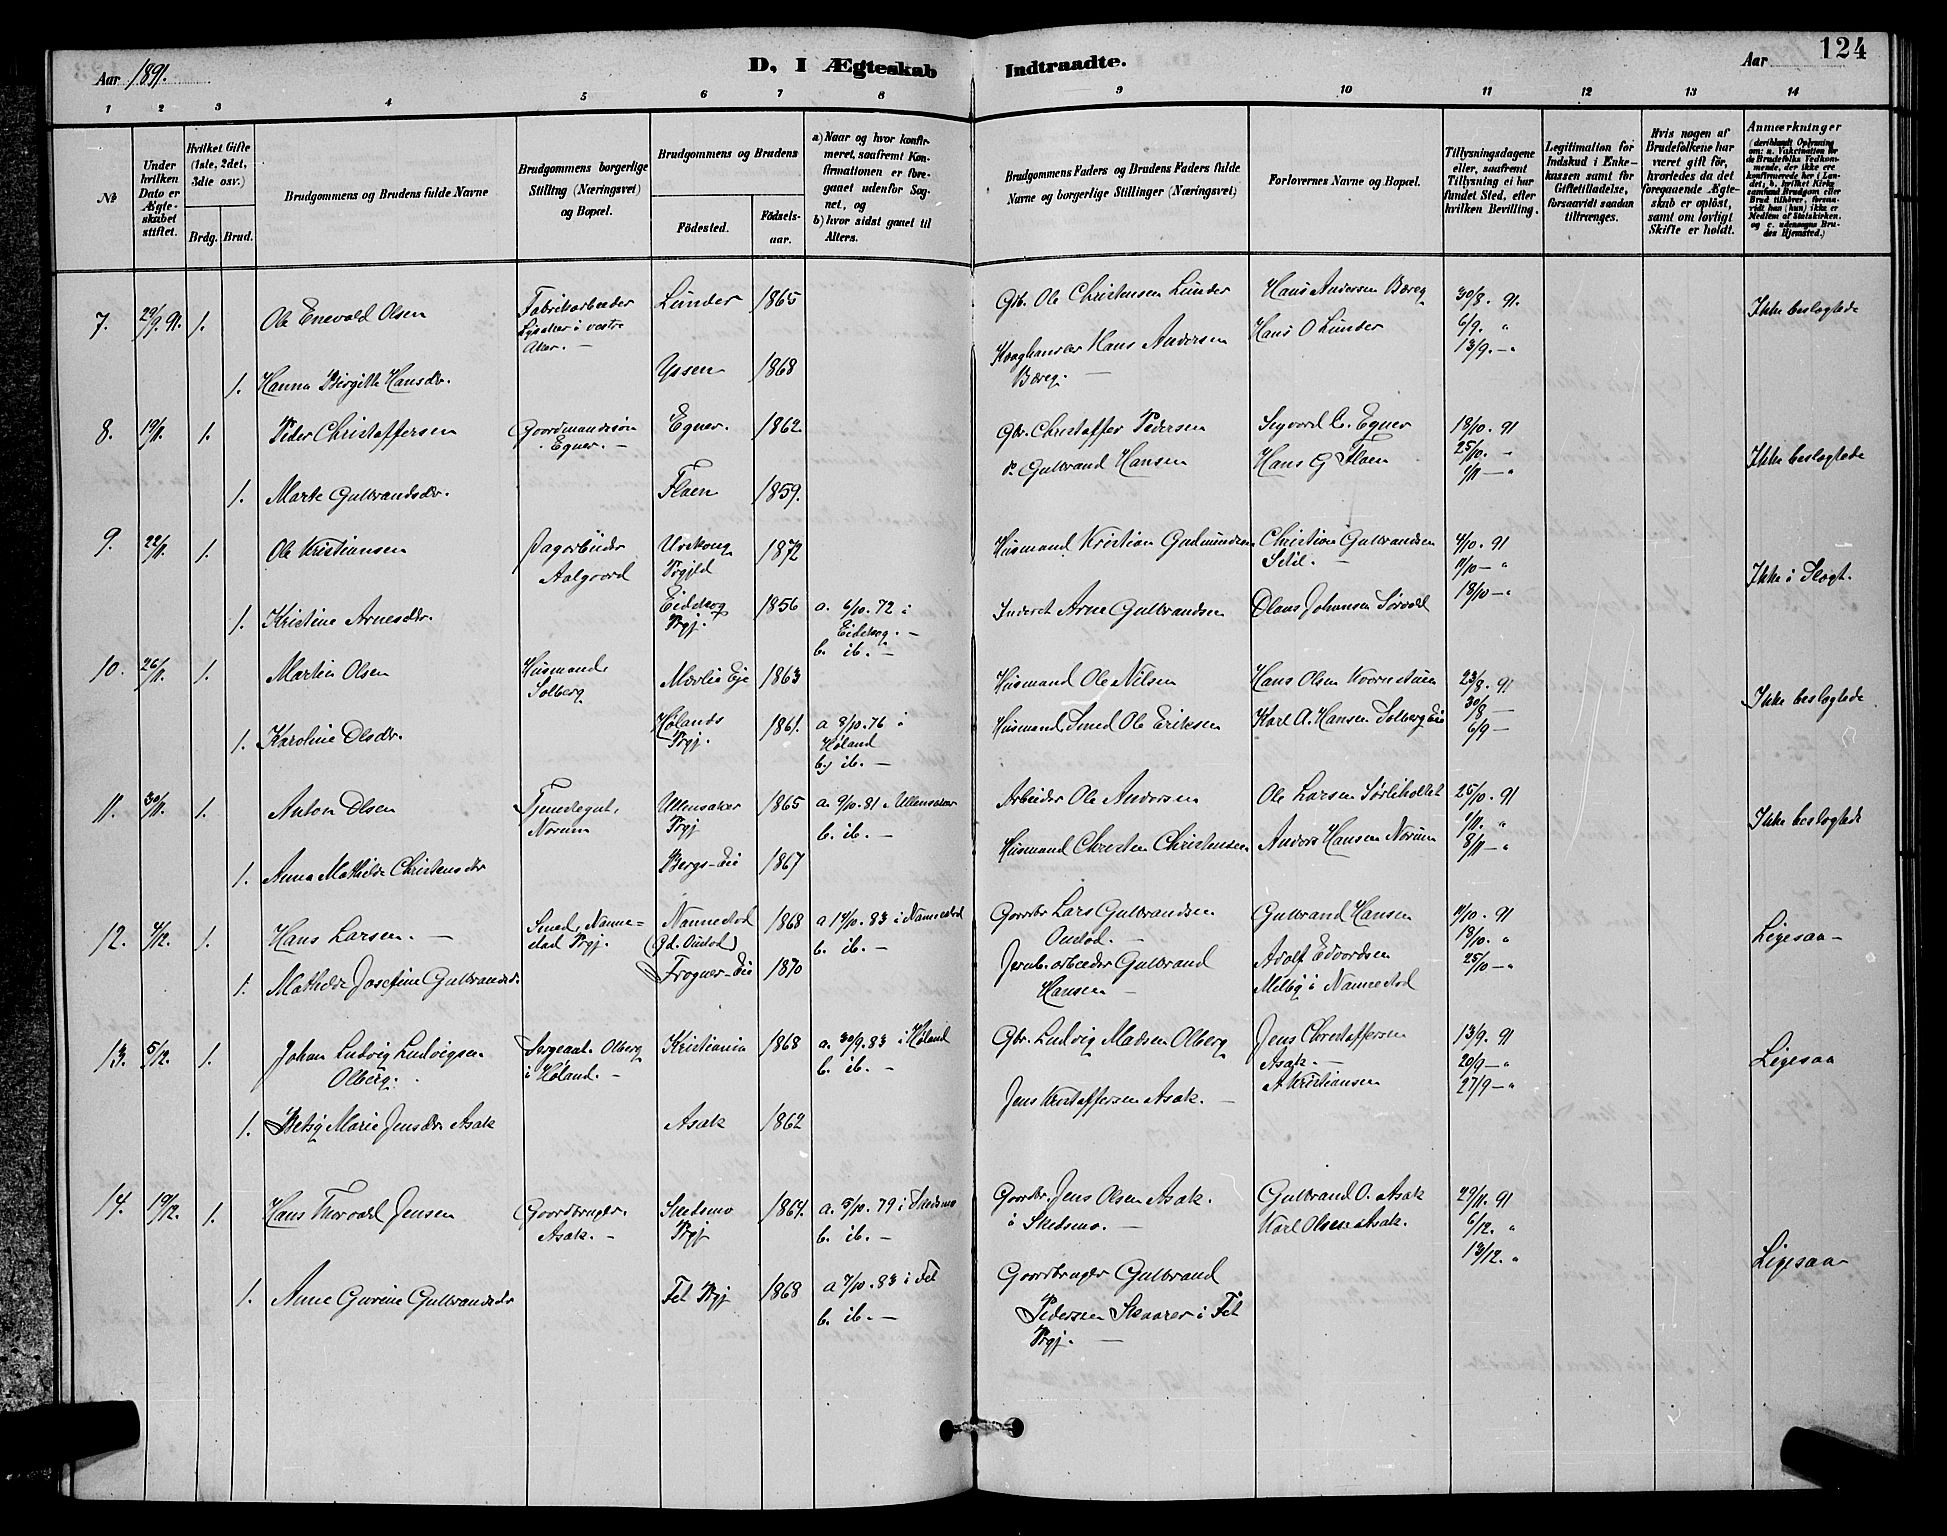 Aar 1891.
D. I Ægteskab Indtraadte.
Aar
124
1 2 3 4 5 6 7 8 9 10 11 12 13 14
No
Under hvilken Dato er Ægteskabet stiftet.
Hvilket Gifte (1ste, 2det, 3die osv.)
Brdg. Brud.
Brudgommens og Brudens fulde Navne
Brudgommens borgerlige Stilling (Næringsvei) og Bopæl.
Brudgommens og Brudens
Fødested.
Fødselsaar.
a) Naar og hvor konfirmeret, saafremt Konfirmationen er foregaaet udenfor Sognet, og
b) hvor sidst gaaet til Alters.
Brudgommens Faders og Brudens Faders fulde Navne og borgerlige Stillinger (Næringsvei)
Forlovernes Navne og Bopæl.
Tillysningsdagene eller, saafremt Tillysning ei har fundet Sted, efter hvilken Bevilling.
Legitimation for Indskud i Enkekassen samt for Giftetilladelse, forsaavidt saadan tiltrænges.
Hvis nogen af Brudefolkene har været gift før, hvorledes da det foregaaende Ægteskab er opløst, samt om lovligt Skifte er holdt.
Anmærkninger
7. 29/9 91. 1. Ole Enevald Olsen Fabrikarbeider Lysaker i vestre Aker. Lunder 1865 Gbr. Ole Christensen Lunder Hans Andersen Bæreg 30/8. 91. Ikke beslægtede
Hans Andersen Hans O Lunder 6/9. "
1. Hanna Birgitte Hansdr. Yssen 1868 Bæreg. 13/9. - "
8. 19/11. 1. Peder Christoffersen Gaardmandssøn Egner. Egner. 1862. Gbr. Christoffer Pedersen Sigvard C. Egner 18/10. 91
Do. Gulbrand Hansen Hans G Flaen 25/10. - Ikke beslægtede
1. Marte Gulbrandsdr. Flaen 1859. 1/11 - "
9. 22/11. 1. Ole Kristiansen Dagarbeider Aalgaard Urskoug Prgjld 1872 Husmand Kristian Gudmundsen Christian Gulbrandsen 4/10. 91
11/10 - " Ikke i Slægt.
1. Kristine Arnesdr. Eidskog Prgj. 1856 a. 6/10. 72 i Eidskog. b. ib. Inderst Arne Gulbrandsen Olaus Johansen Sørvald 18/10 - "
10. 26/11. 1. Martin Olsen Husmand, Solberg Mærlie Eje 1863 Husmand Ole Nilsen Hans Olsen Kvernstuen 23/8. 91
30/8 - Ikke beslægtede
1. Karoline Olsdr. Hølands Prgj. 1861. a 8/10. 76 i Høland b) ib. Husmand Smed Ole Eriksen Karl A. Hansen Solberg Eie 6/9 -
11. 30/11. 1. Anton Olsen Tjenestegut, Norum Ullensaker Prgj 1865 a. 9/10. 81 i Ullensaker b. ib. Arbeider Ole Andersen Ole Larsen Sørliholtet 25/10. 91
1/11. " Ikke beslægtede
1. Anna Mathilde Christensdr Bergs-Eie 1867 Husmand Christen Christensen Anders Hansen Norum 8/11 - "
12. 4/12. 1. Hans Larsen. Smed, Nannestad Prgj. Nannestad (Gd. Onstad) 1868 a 14/10. 83 i Nannestad b. ib. Gaardbr Lars Gulbrandsen Onstad. Gulbrand Hansen 11/10. 91
18/10. " Ligesaa
1. Mathilde Josefine Gulbrandsdr Frogner-Eie 1870 Jernb. arbeider Gulbrand Hansen Adolf Edvardsen Melby i Nannestad 25/10 - "
13. 5/12. 1. Johan Ludvig Ludvigsen Olberg. Sergeant. Olberg i Høland. Kristiania 1868 a. 30/9. 83 i Høland b. ib. Gbr. Ludvig Madsen Olberg Jens Christoffersen Asak. 13/9. 91
20/9 - " Ligesaa
Jens Kristoffersen Asak. A Kristiansen 27/9 - "
1. Betsy Marie Jensdr Asak Asak 1862
14. 19/12. 1. Hans Thorvald Jensen Gaardbruger. Asak. Skedsmo Prgj 1864. a. 5/10. 79 i Skedsmo b. ib. Gaardbr. Jens Olsen Asak. i Skedsmo. Gulbrand O. Asak Karl Olsen Asak. 29/11. 91
6/12. "
13/12. " Ligesaa
1. Anne Gurine Gulbrandsdr Fet Prgj 1868 a 7/10. 83 i Fet b. ib. Gaardbruger Gulbrand Pedersen Skaarer i Fet Prgj.